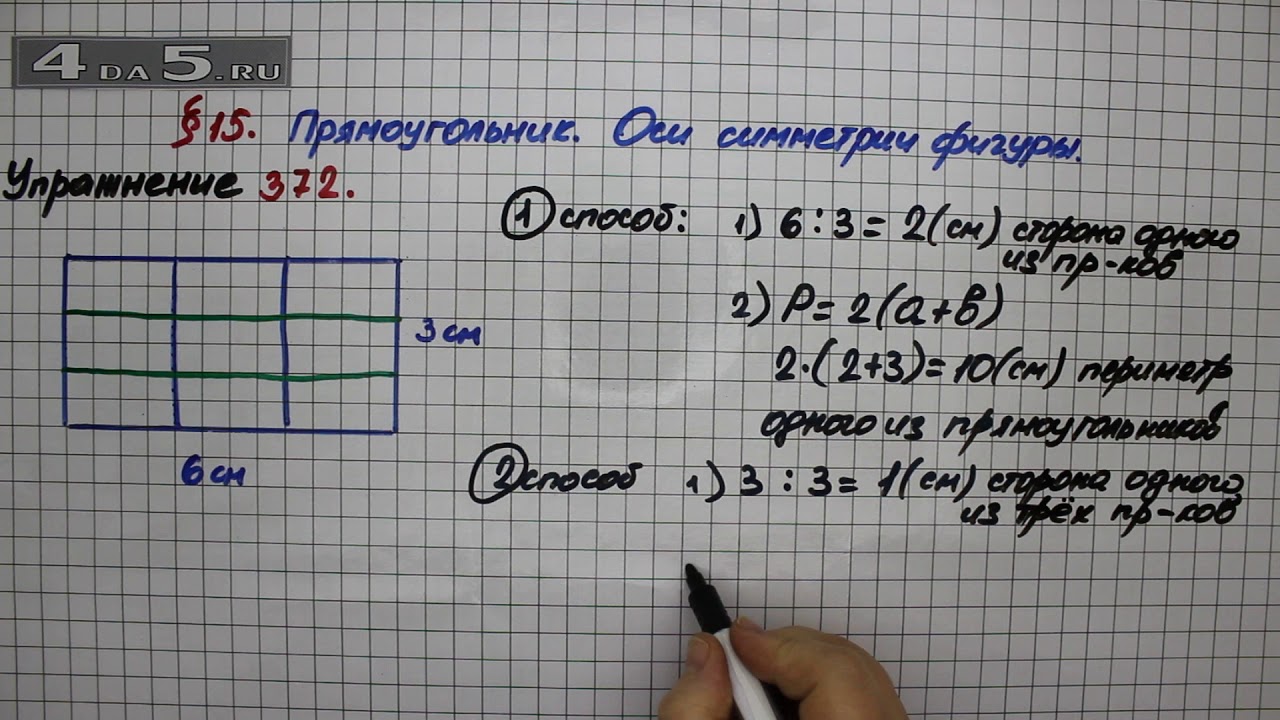 4DA5.RU
§15. Прямоугольник. Оси симметрии фигуры.
Упражнение 372.
3 см
6 см
1 способ: 1) 6 : 3 = 2 (см) сторона одного
из пр-ков
2) P = 2 (a + b)
2 · (2 + 3) = 10 (см) периметр
одного из прямоугольников
2 способ 1) 3 : 3 = 1 (см) сторона одного
из трёх пр-ков